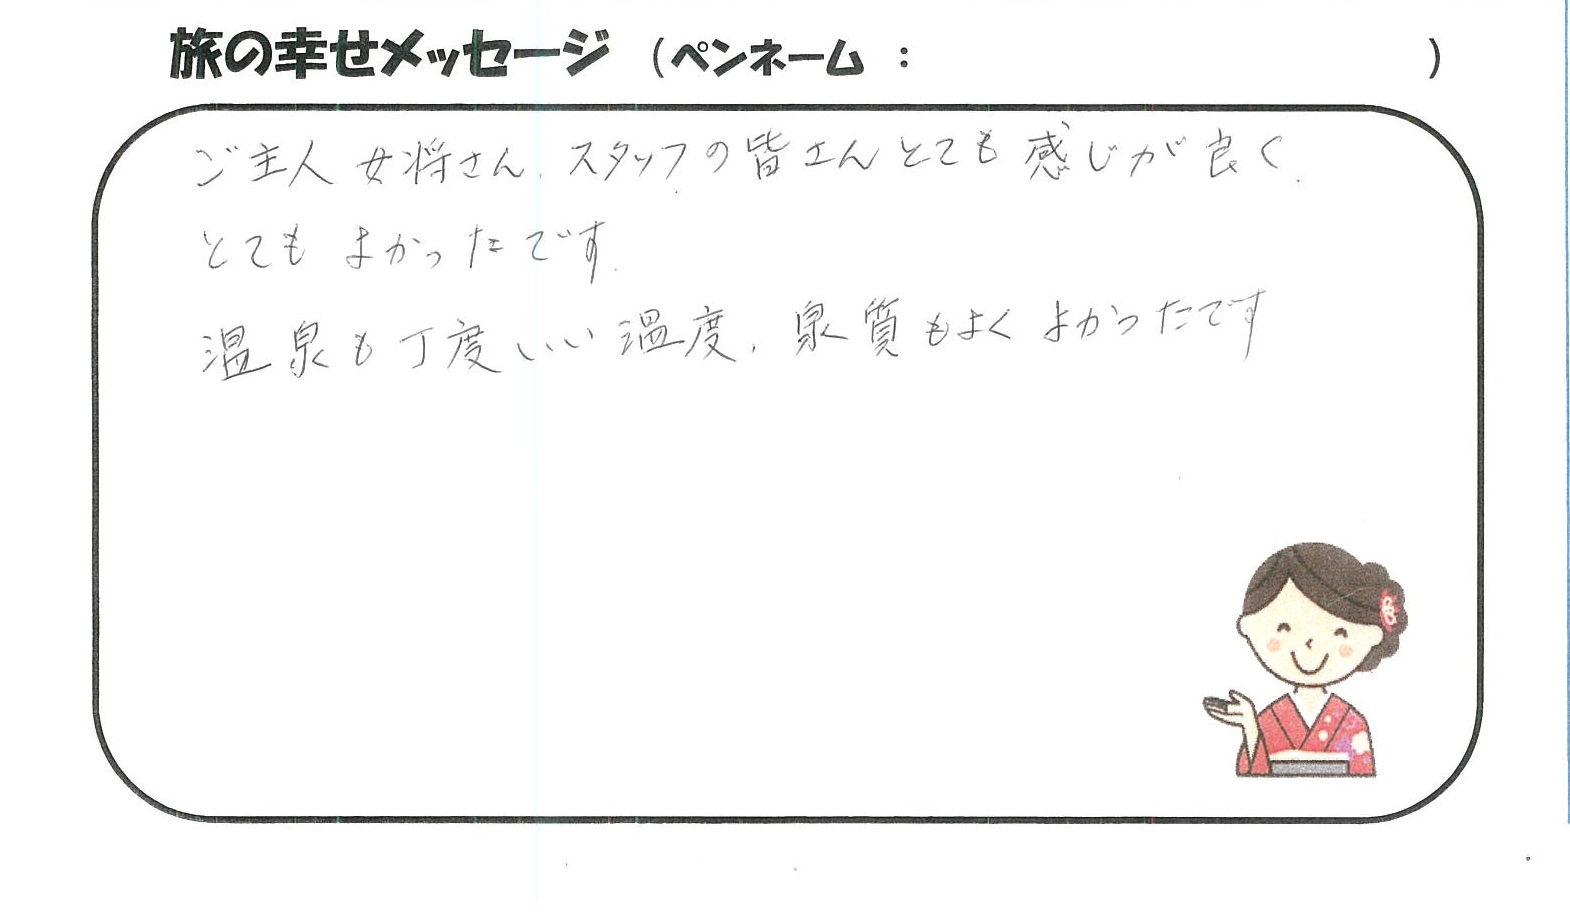 旅の幸せメッセージ (ペンネーム : )
ご主人 女将さん、スタッフの皆さんとても感じが良く、
とてもよかったです。
温泉も丁度いい温度、泉質もよくよかったです